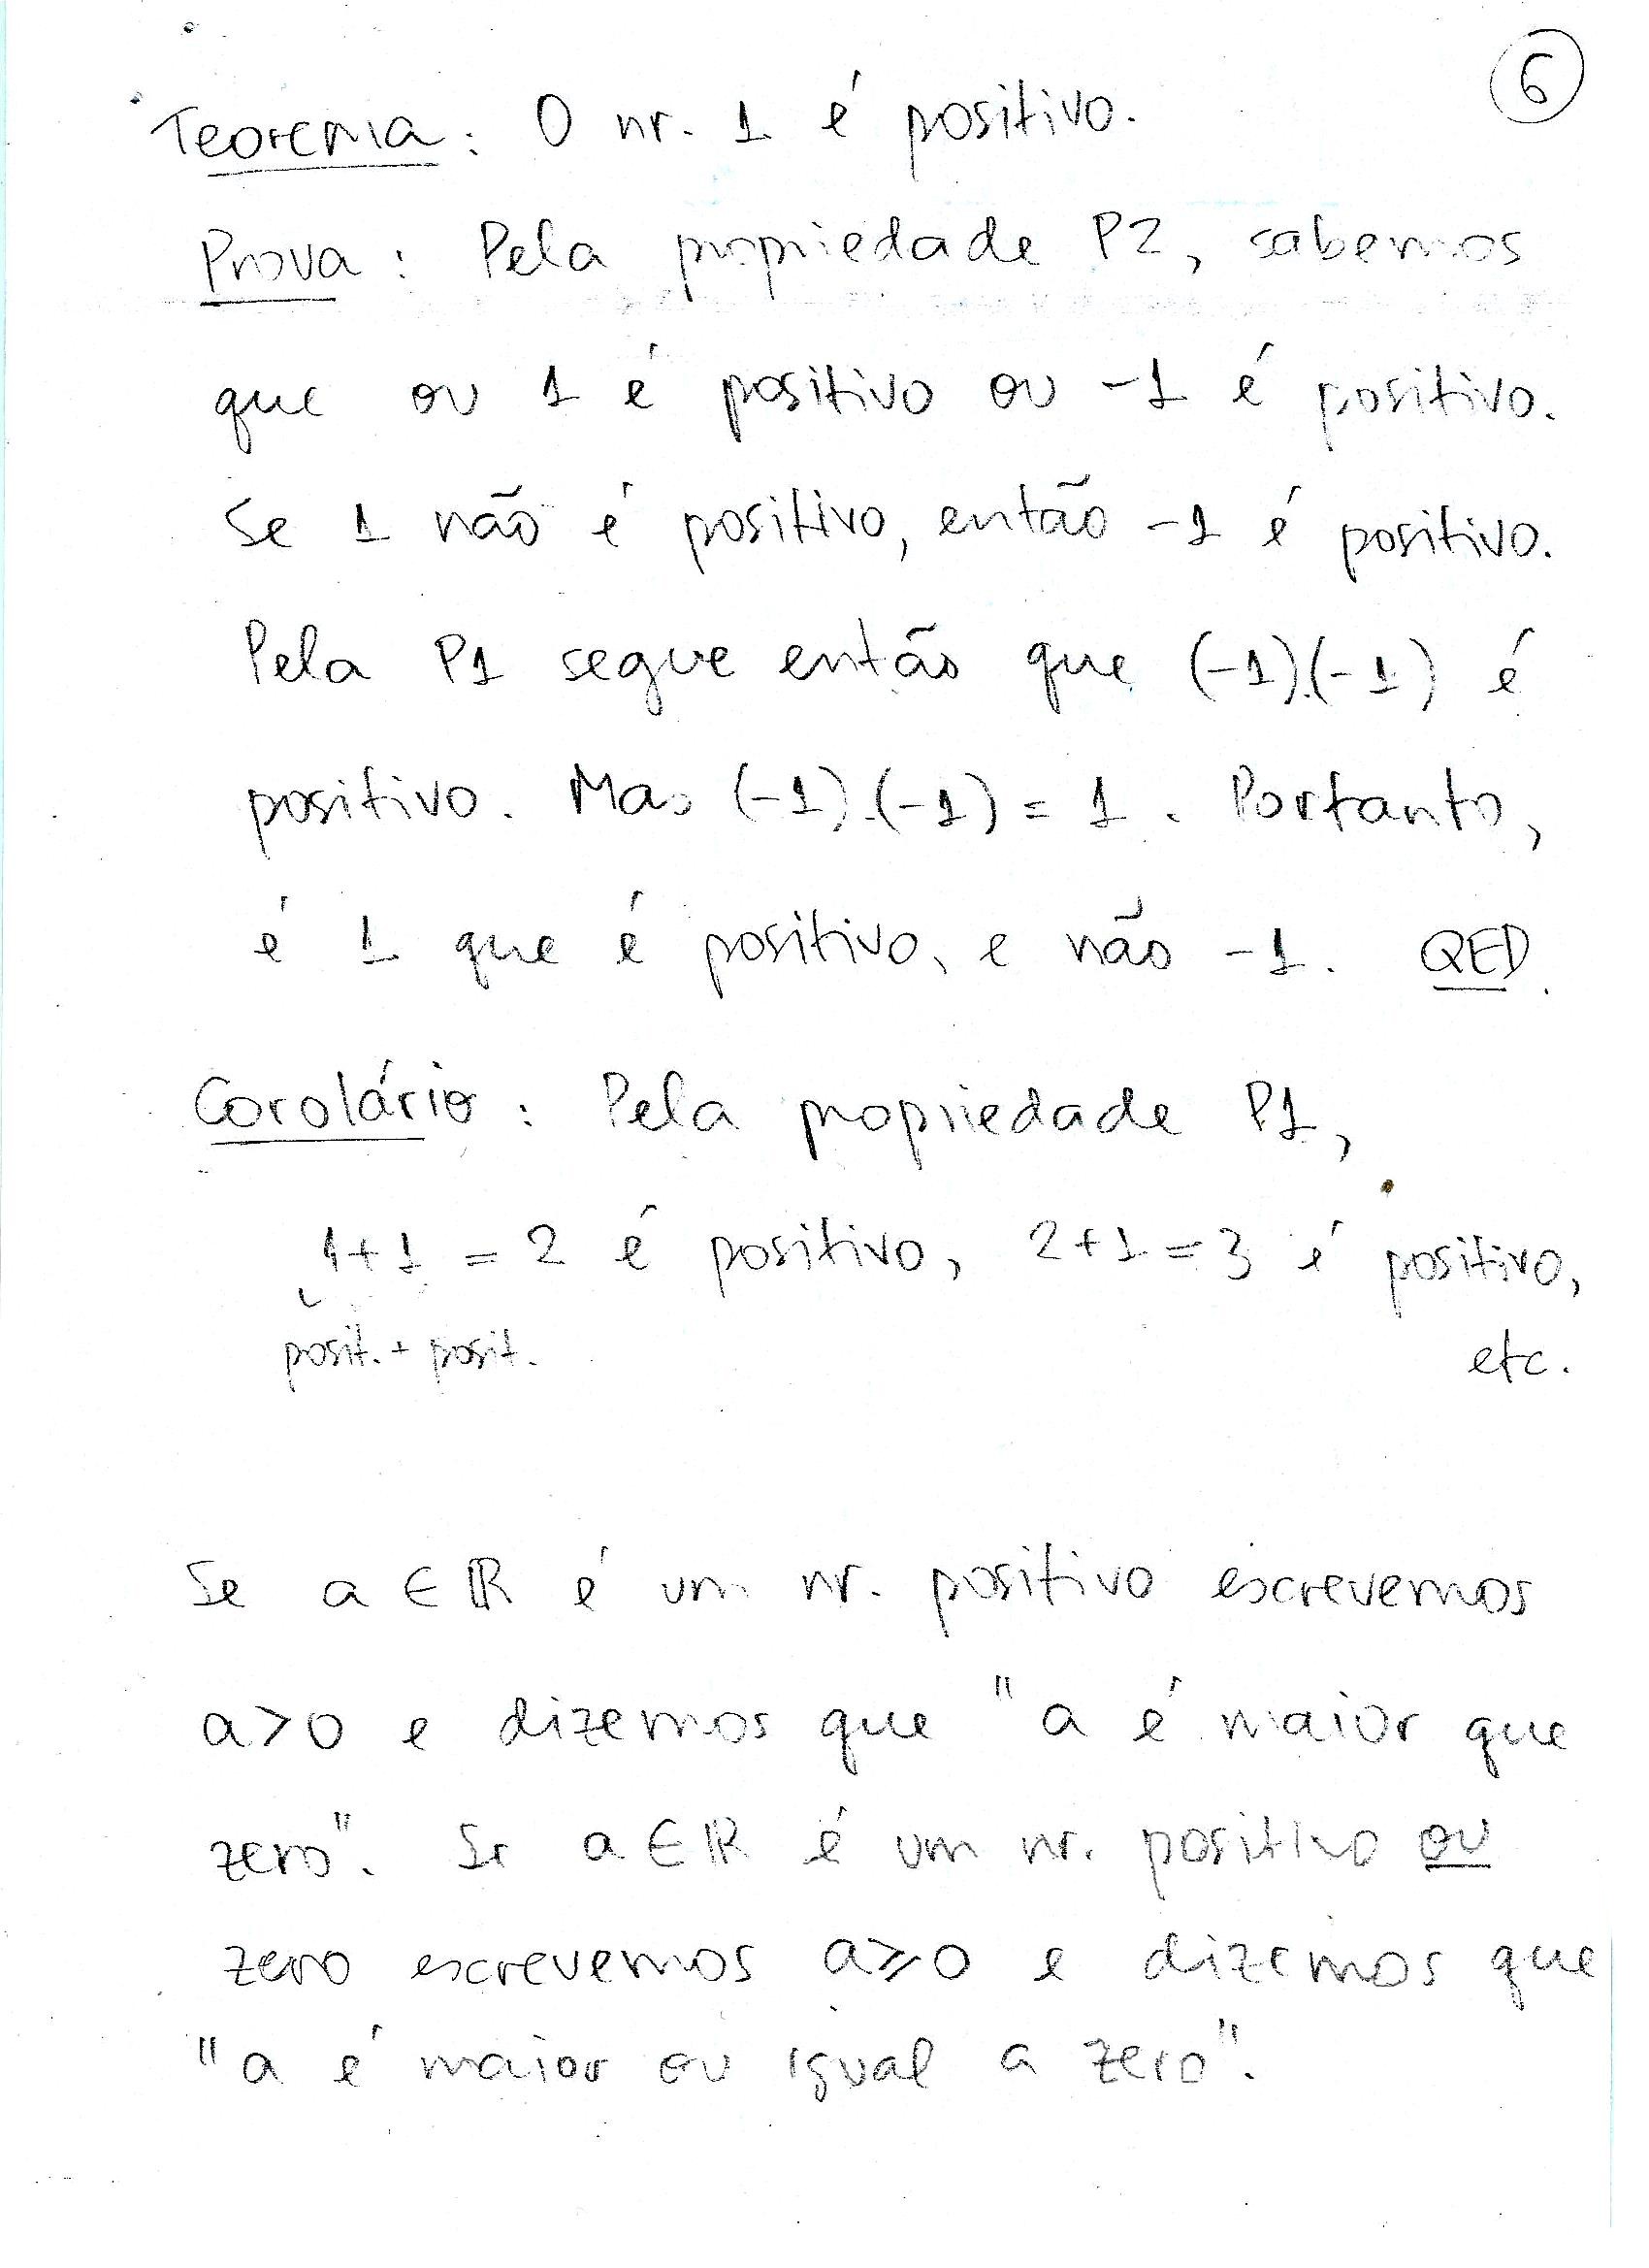 6
Teorema: O nr. 1 é positivo.
Prova: Pela propriedade P2, sabemos
que ou 1 é positivo ou -1 é positivo.
Se 1 não é positivo, então -1 é positivo.
Pela P1 segue então que (-1).(-1) é
positivo. Mas (-1).(-1) = 1. Portanto,
é 1 que é positivo, e não -1. QED.
Corolário: Pela propriedade P1,
1+1 = 2 é positivo, 2+1 = 3 é positivo,
posit. + posit. etc.
Se a ∈ ℝ é um nr. positivo escrevemos
a>0 e dizemos que "a é maior que
zero". Se a ∈ ℝ é um nr. positivo ou
zero escrevemos a⩾0 e dizemos que
"a é maior ou igual a zero".